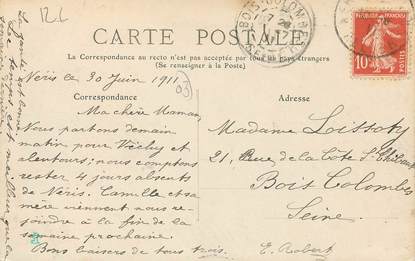 12L
CARTE POSTALE
La Correspondance au recto n'est pas acceptée par tous les pays étrangers
(Se renseigner à la Poste)
BOIS-COLOMBES
REPUBLIQUE FRANÇAISE
10
Néris le 30 Juin 1911
03
Correspondance
Adresse
Ma chère Maman,
Nous partons demain
matin pour Vichy et
alentours; nous comptons
rester 4 jours absents
de Néris. Camille et sa
mère viennent nous re-
joindre à la fin de la
semaine prochaine.
Bons baisers de tous trois.
E. Robert
Madame Loissoty
21, Rue de la Côte St Thibault
Bois Colombes
Seine.